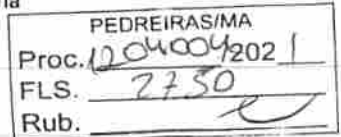 PEDREIRAS/MA
Proc. 1204004/2021
FLS. 2750
Rub.